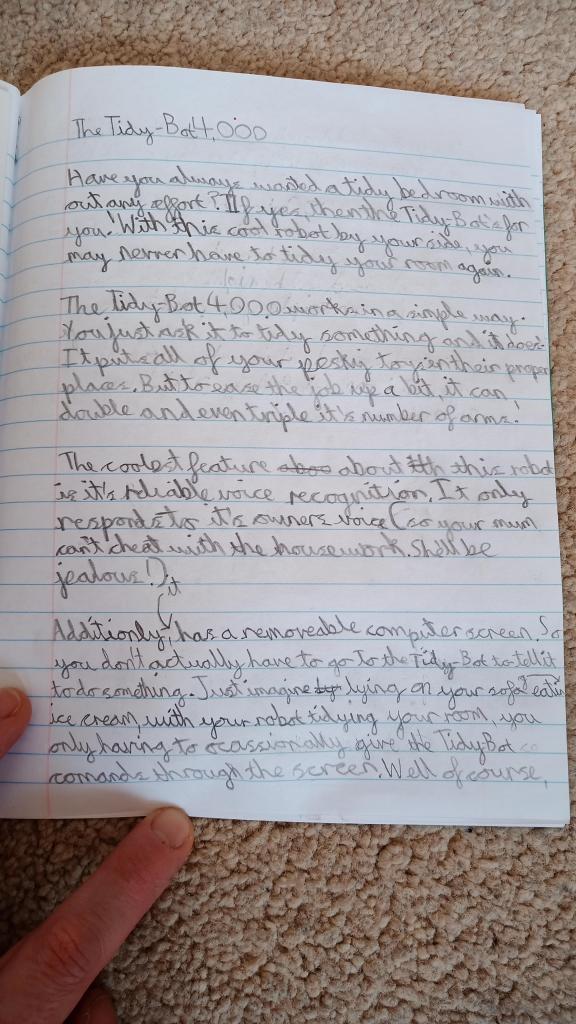 The Tidy-Bot 4,000
Have you always wanted a tidy bedroom with
out any effort? If yes, then the Tidy-Bot's for
you! With this cool robot by your side, you
may nerver have to tidy your room again.
The Tidy-Bot 4,000 works in a simple way.
You just ask it to tidy something and it does.
It puts all of your pesky toys in their proper
places. But to ease the job up a bit, it can
double and even triple it's number of arms!
The coolest feature about this robot
is it's reliable voice recognition. It only
responds to it's owners voice (so your mum
can't cheat with the housework. She'll be
jealous!).
Additionly, it has a removeable computer screen. So
you don't actually have to go to the Tidy-Bot to tell it
to do something. Just imagine lying on your sofa eating
ice cream, with your robot tidying your room, you
only having to ocassionally give the Tidy Bot
comands through the screen. Well of course,